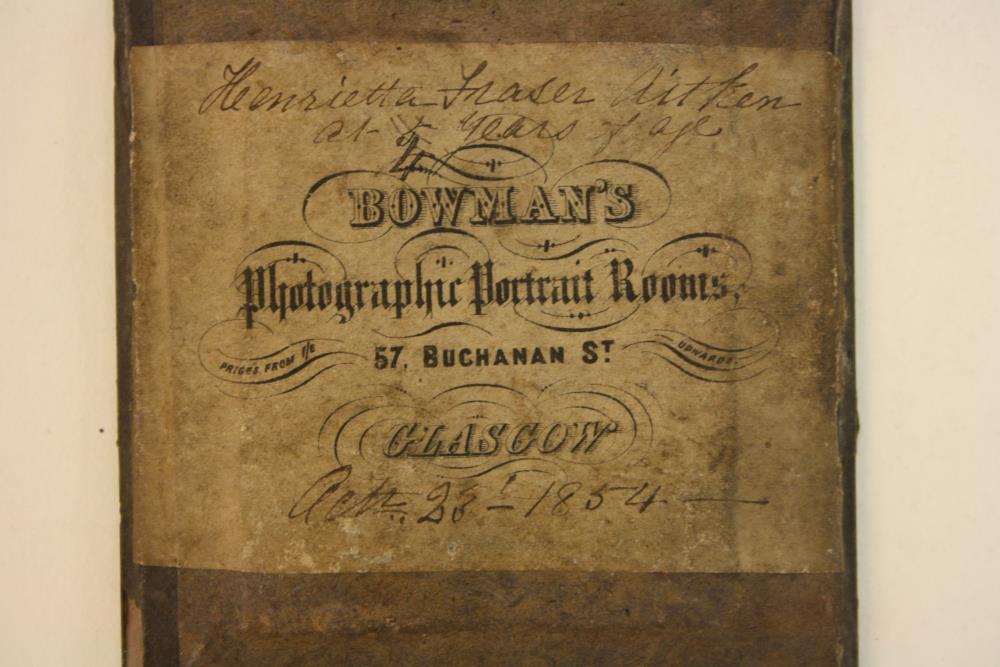 Henrietta Fraser Aitken
at 4 Years of age
BOWMAN'S
Photographic Portrait Rooms,
PRICES FROM 1/6 57, BUCHANAN ST. UPWARDS
GLASGOW
23 1854